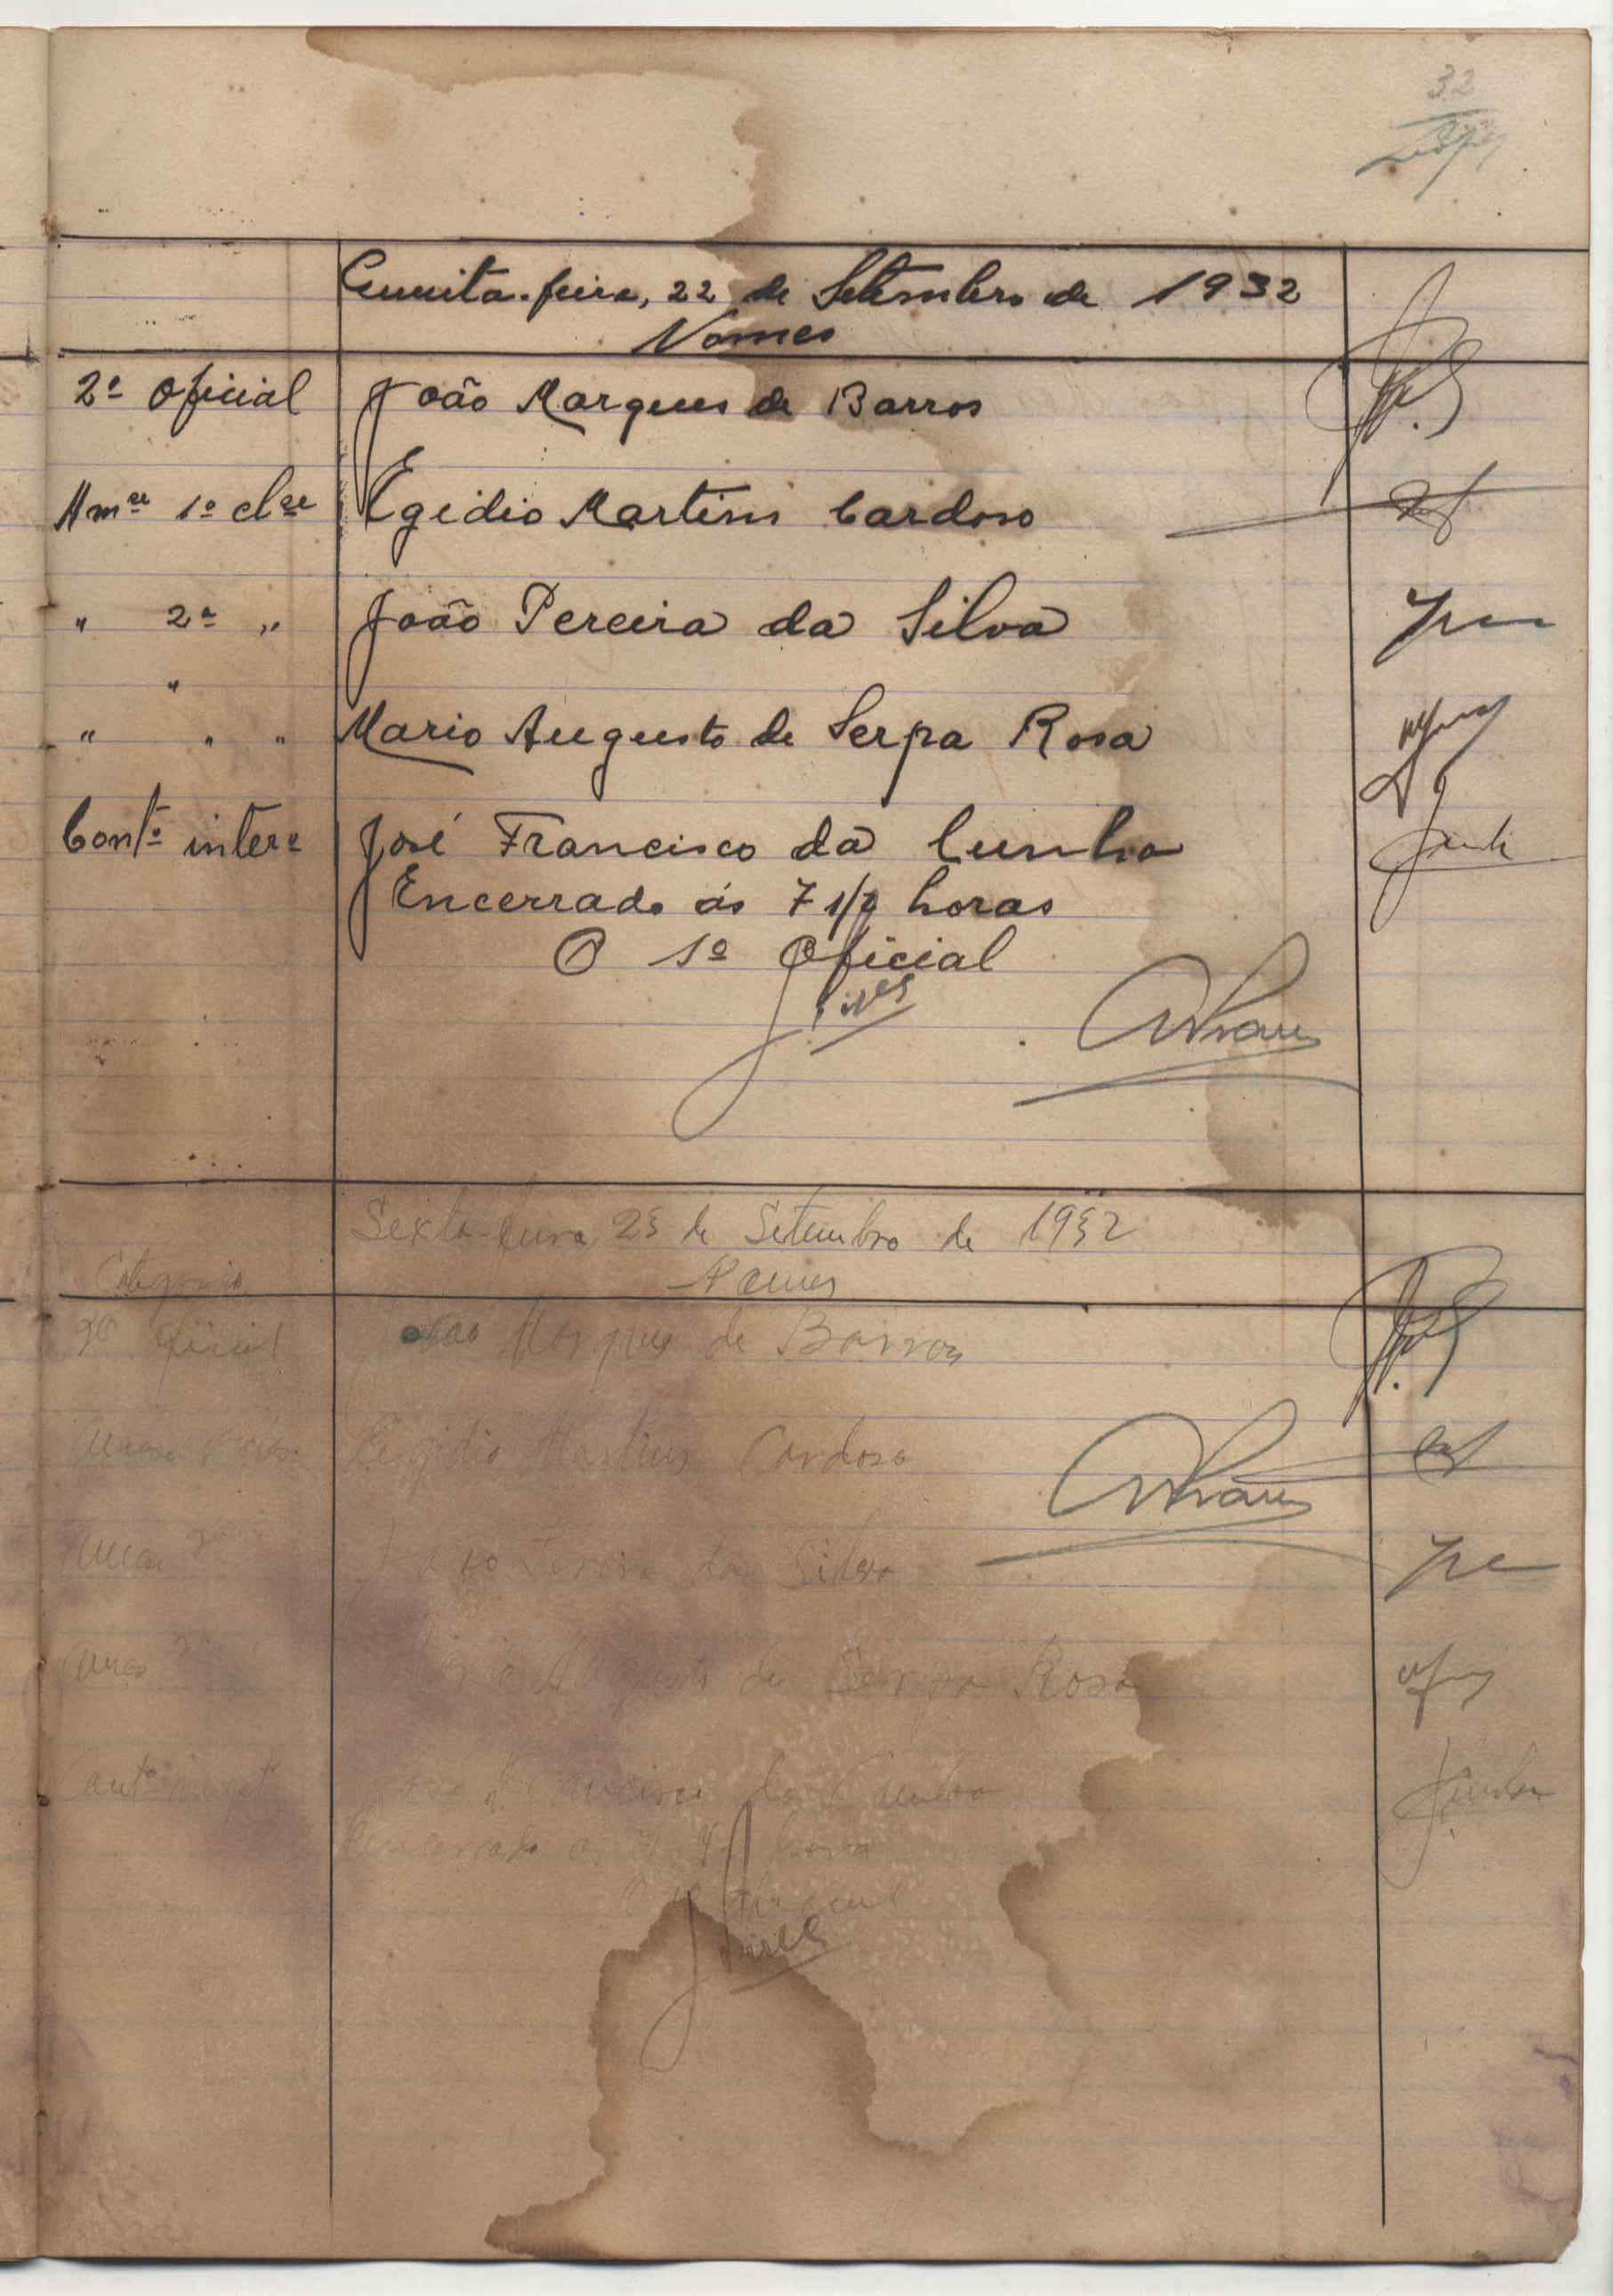 32
Quuita-feira, 22 de Setembro de 1932
Nomes
2º Oficial João Marques de Barros
Amse 1ª clse Egidio Martins Cardoso
" 2ª " João Pereira da Silva
"
" " " Mario Augusto de Serpa Rosa
Conto inter.º José Francisco da Cunha
Encerrado ás 7 1/2 horas
O 1º Oficial
Sexta-feira 23 de Setembro de 1932
Categoria Nomes
2º Oficial João Marques de Barros
Egidio Martins Cardoso
2ª João Pereira da Silva
Mario Augusto de Serpa Rosa
José Francisco da Cunha
Encerrado ás 7 horas
O 1º Oficial